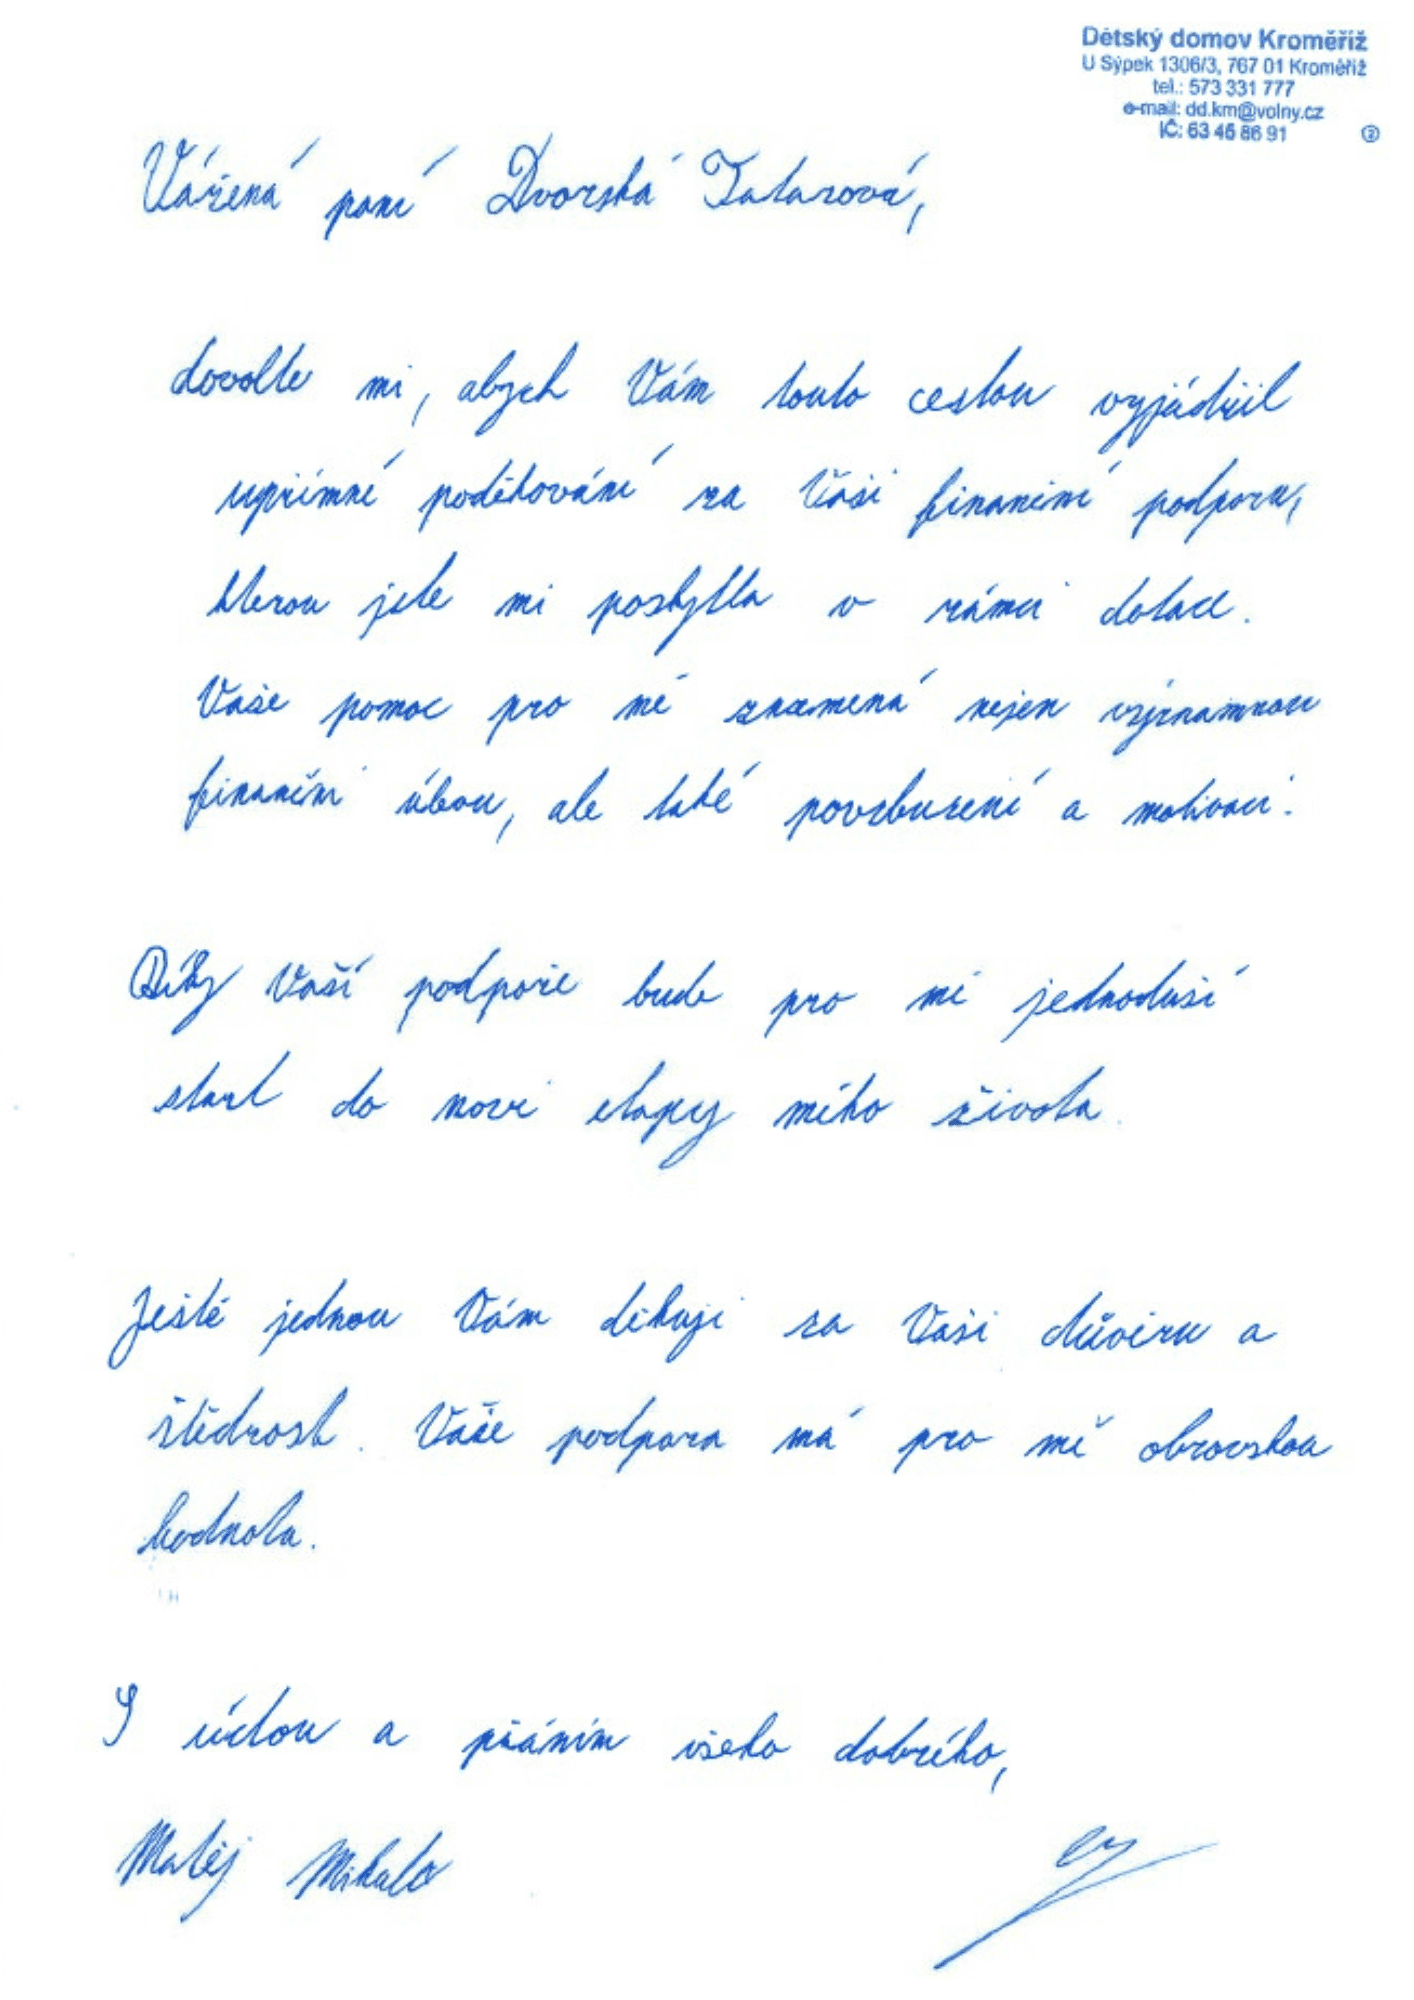 Dětský domov Kroměříž
U Sýpek 1306/3, 767 01 Kroměříž
tel.: 573 331 777
e-mail: dd.km@volny.cz
IČ: 63 46 86 91
②
Vážená paní Dvorská Tatarová,
dovolte mi, abych Vám touto cestou vyjádřil
upřímné poděkování za Vaši finanční podporu,
kterou jste mi poskytla v rámci dotace.
Vaše pomoc pro mě znamená nejen významnou
finanční úlevu, ale také povzbuzení a motivaci.
Díky Vaší podpoře bude pro mě jednodušší
start do nové etapy mého života.
Ještě jednou Vám děkuji za Vaši důvěru a
štědrost. Vaše podpora má pro mě obrovskou
hodnotu.
S úctou a přáním všeho dobrého,
Matěj Mikulo